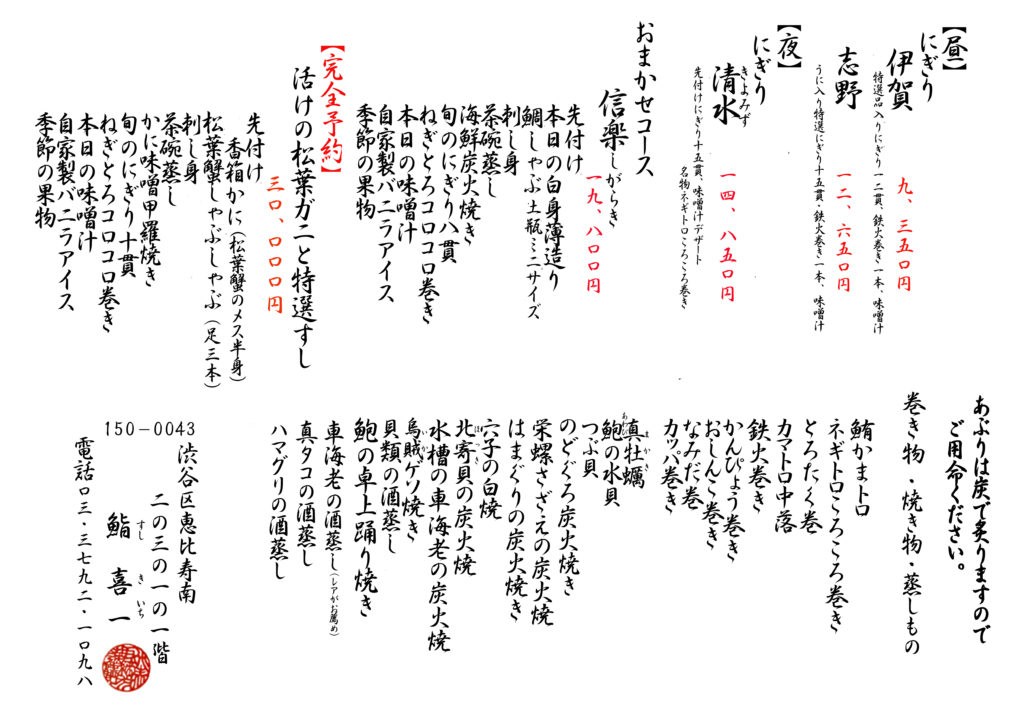 【昼】
にぎり
伊賀
九、三五〇円
特選品入りにぎり一二貫、鉄火巻き一本、味噌汁
志野
一二、六五〇円
うに入り特選にぎり十五貫・鉄火巻き一本、味噌汁
【夜】
にぎり
清水
きよみず
一四、八五〇円
先付けにぎり十五貫、味噌汁デザート
名物ネギトロころころ巻き
おまかせコース
信楽しがらき
一九、八〇〇円
先付け
本日の白身薄造り
鯛しゃぶ土瓶ミニサイズ
刺し身
茶碗蒸し
海鮮炭火焼き
旬のにぎり八貫
ねぎとろコロコロ巻き
本日の味噌汁
自家製バニラアイス
季節の果物
【完全予約】
活けの松葉ガニと特選すし
三〇、〇〇〇円
先付け
香箱かに(松葉蟹のメス半身)
松葉蟹しゃぶしゃぶ(足三本)
刺し身
茶碗蒸し
かに味噌甲羅焼き
旬のにぎり十貫
ねぎとろコロコロ巻き
本日の味噌汁
自家製バニラアイス
季節の果物
あぶりは炭で炙りますので
ご用命ください。
巻き物・焼き物・蒸しもの
鮪かまトロ
ネギトロころころ巻き
とろたく巻
カマトロ中落
鉄火巻き
かんぴょう巻き
おしんこ巻き
なみだ巻
カッパ巻き
真牡蠣
まかき
鮑の水貝
あわび
つぶ貝
のどぐろ炭火焼き
栄螺さざえの炭火焼
はまぐりの炭火焼き
穴子の白焼
北寄貝の炭火焼
ほっき
水槽の車海老の炭火焼
烏賊ゲソ焼き
いか
貝類の酒蒸し
鮑の卓上踊り焼き
車海老の酒蒸し(レアがお薦め)
真タコの酒蒸し
ハマグリの酒蒸し
150-0043
渋谷区恵比寿南
二の三の一の一階
鮨 喜一
すし き いち
電話〇三・三七九二・一〇九八